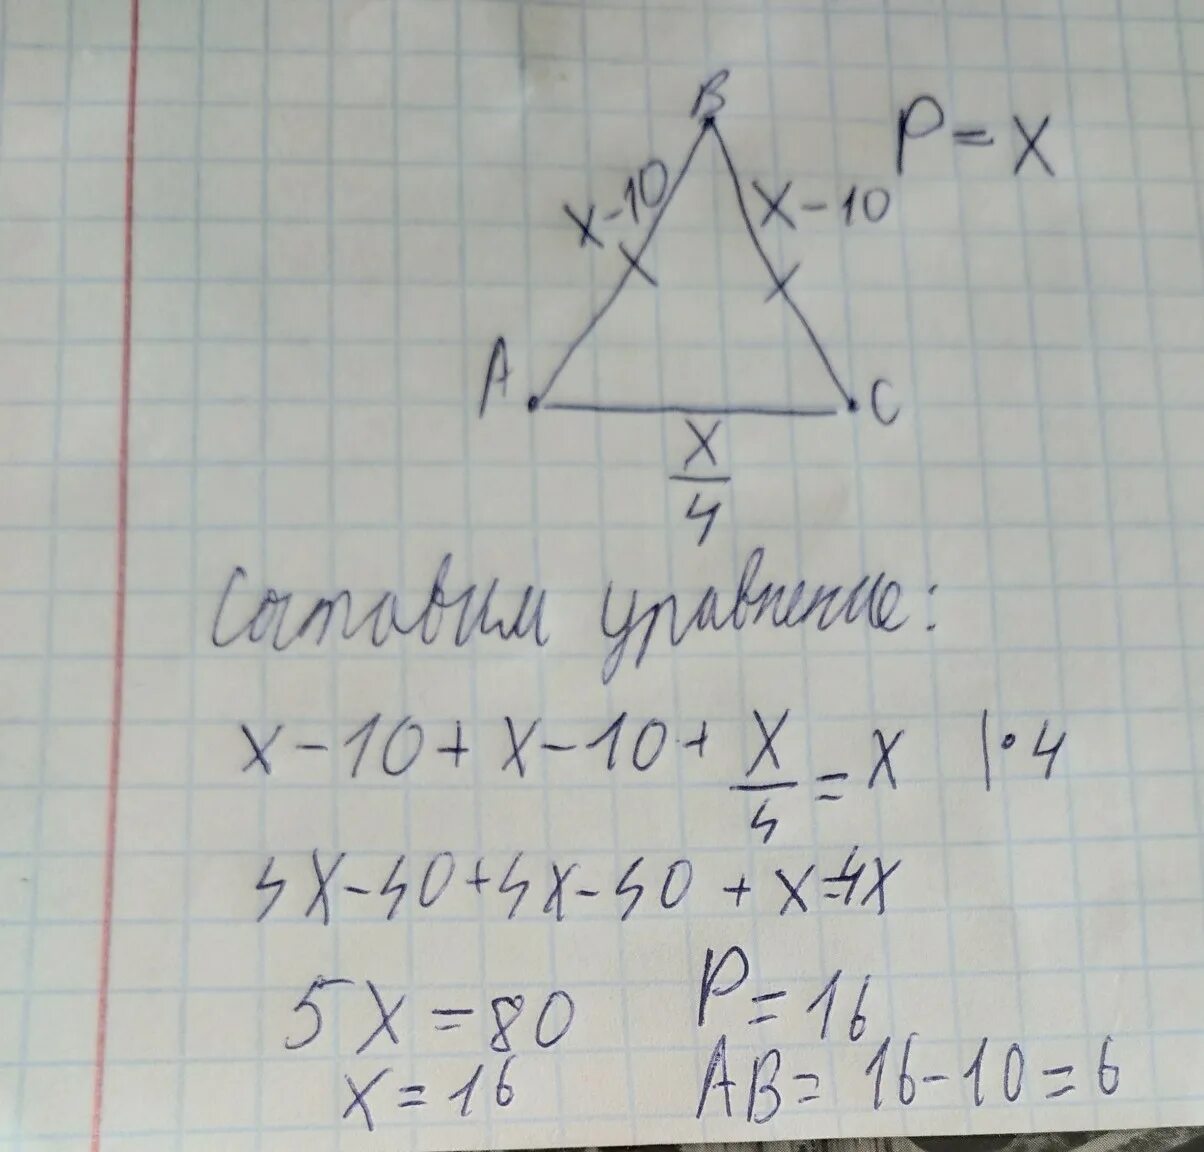 B
P = x
x-10
x-10
A
C
x/4
Составим уравнение:
x-10+x-10+x/4=x |·4
4x-40+4x-40+x=4x
5x=80
P=16
x=16
AB=16-10=6